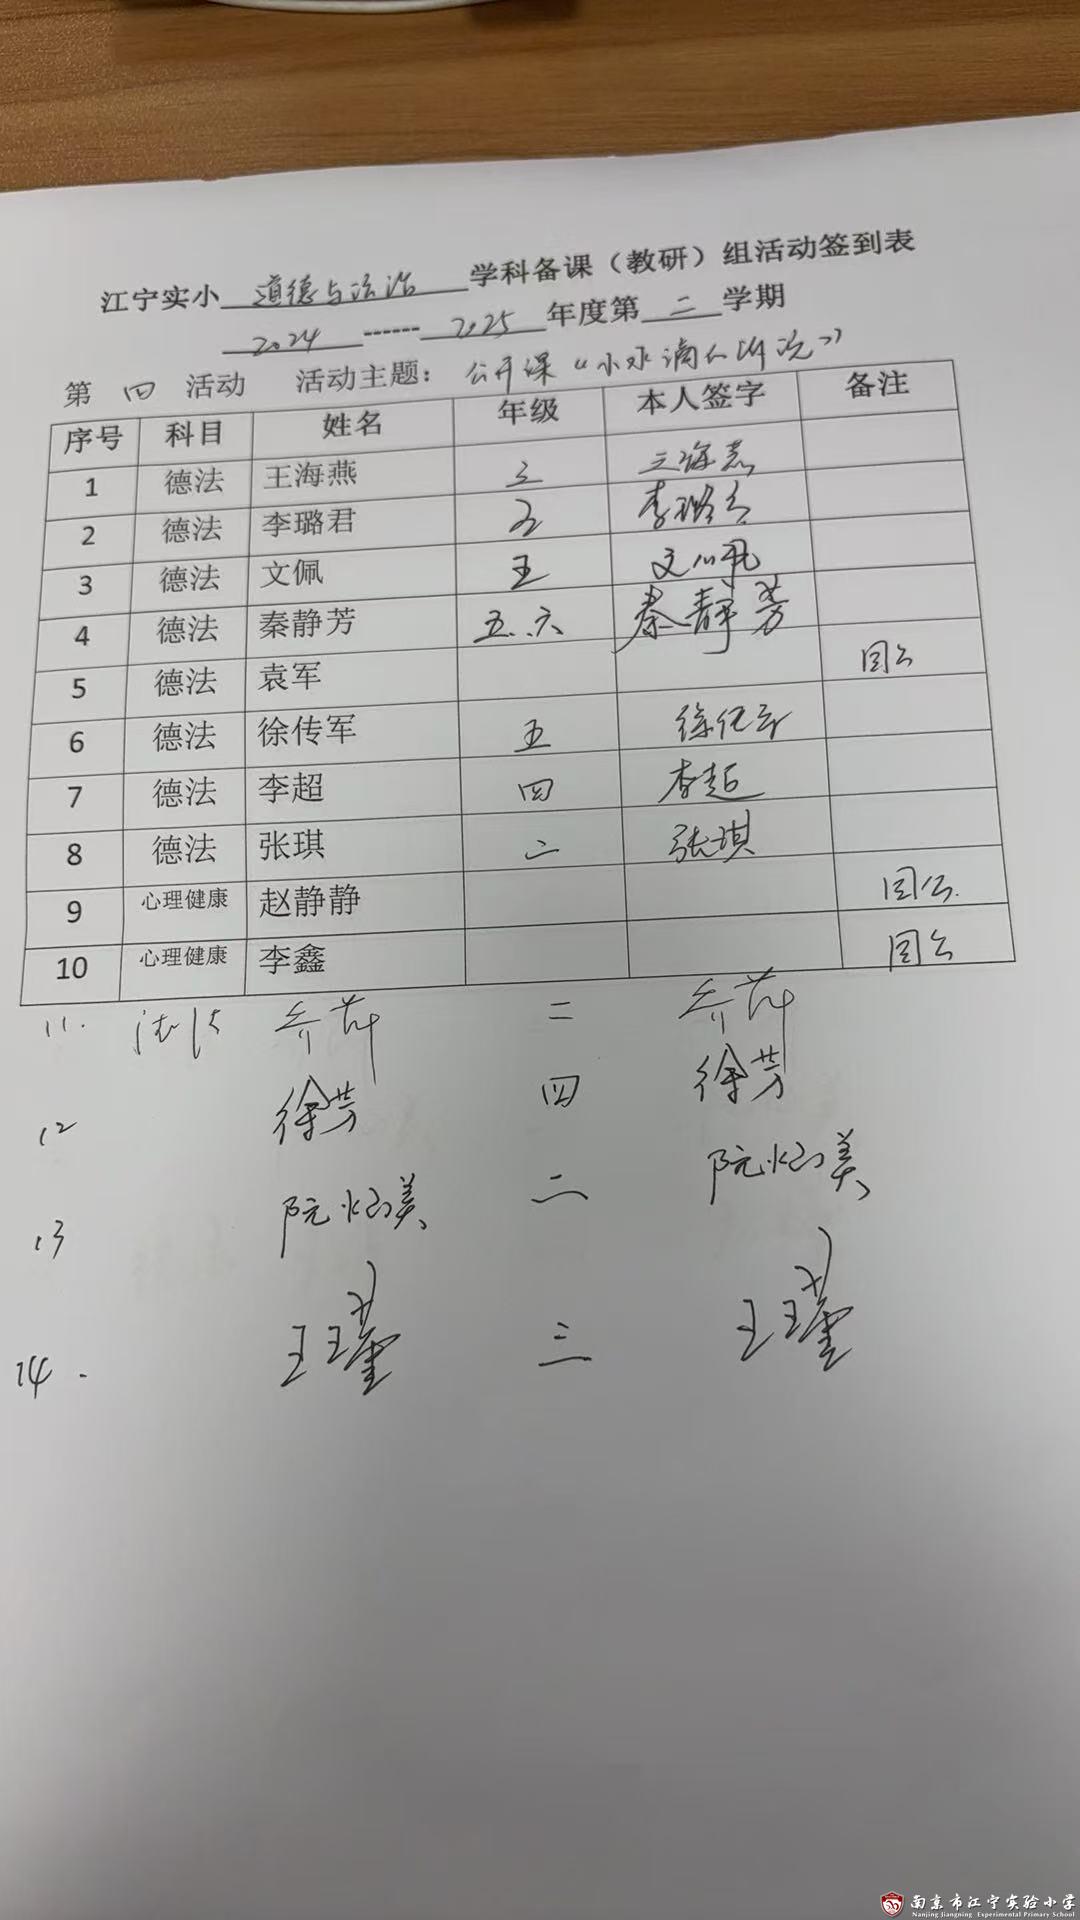 江宁实小 道德与法治 学科备课（教研）组活动签到表
2024 ------ 2025 年度第 二 学期
第 四 活动 活动主题： 公开课“小水滴的诉说”
序号 科目 姓名 年级 本人签字 备注
1 德法 王海燕 三 王海燕
2 德法 李璐君 李璐君
3 德法 文佩 五 文佩
4 德法 秦静芳 五、六 秦静芳
5 德法 袁军 因公
6 德法 徐传军 五 徐传军
7 德法 李超 四 李超
8 德法 张琪 二 张琪
9 心理健康 赵静静 因公.
10 心理健康 李鑫 因公
11. 德法 乔萍 二 乔萍
12 徐芳 四 徐芳
13 阮 美 二 阮 美
14. 王瑾 三 王瑾
南京市江宁实验小学
Nanjing Jiangning Experimental Primary School